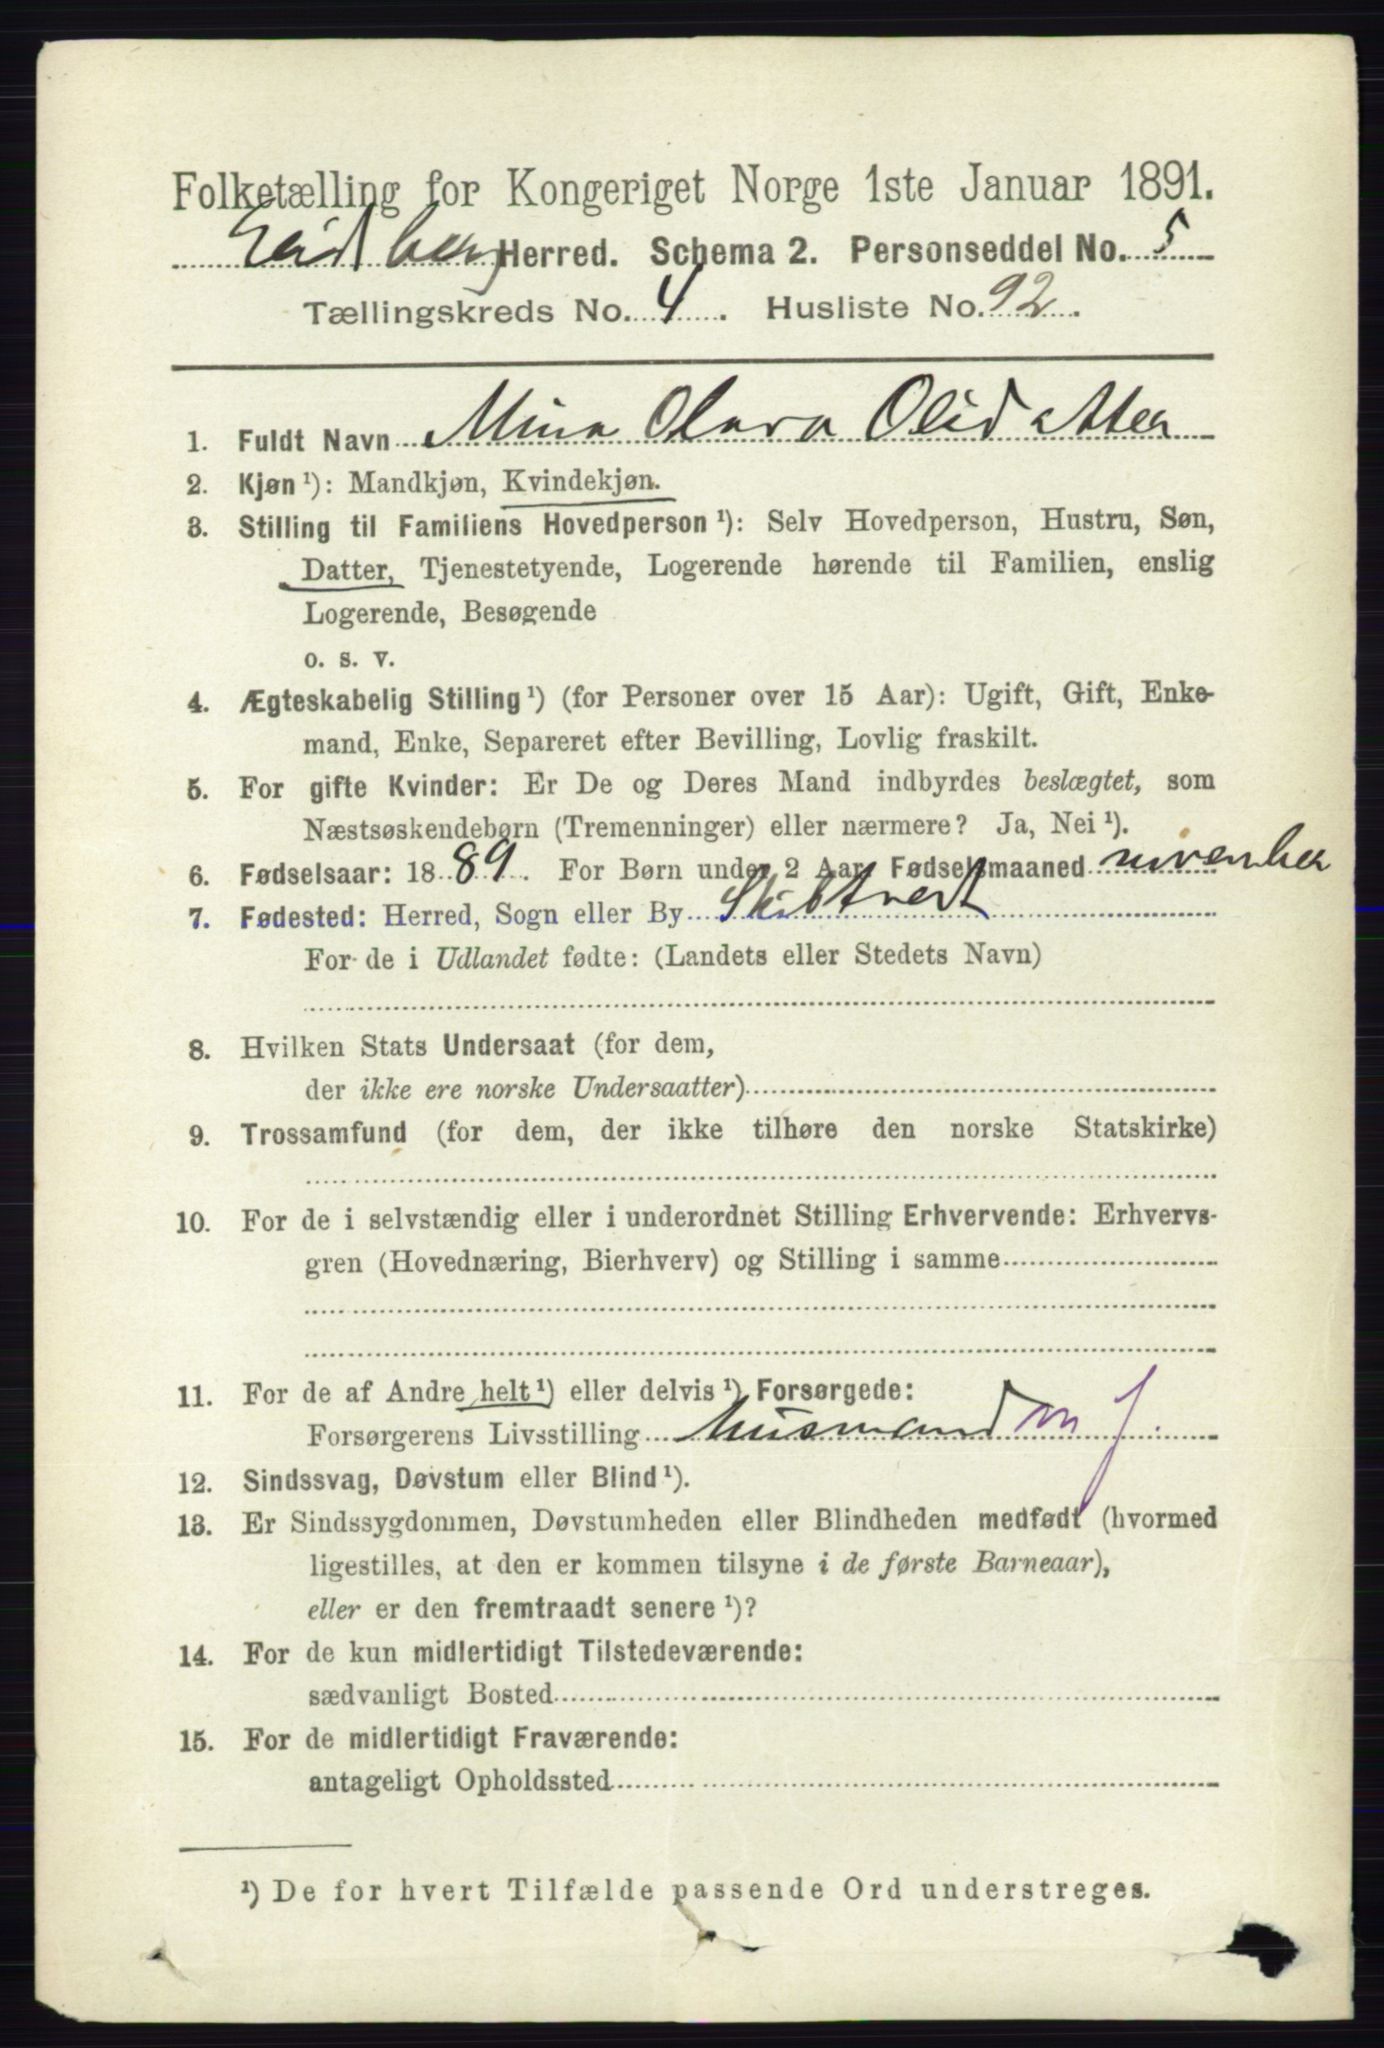 Folketælling for Kongeriget Norge 1ste Januar 1891.
Eidsberg Herred. Schema 2. Personseddel No. 5
Tællingskreds No. 4. Husliste No. 92.
1. Fuldt Navn Mina Olava Olsdatter
2. Kjøn ¹): Mandkjøn, Kvindekjøn.
3. Stilling til Familiens Hovedperson ¹): Selv Hovedperson, Hustru, Søn,
Datter, Tjenestetyende, Logerende hørende til Familien, enslig
Logerende, Besøgende
o. s. v.
4. Ægteskabelig Stilling ¹) (for Personer over 15 Aar): Ugift, Gift, Enke-
mand, Enke, Separeret efter Bevilling, Lovlig fraskilt.
5. For gifte Kvinder: Er De og Deres Mand indbyrdes beslægtet, som
Næstsøskendebørn (Tremenninger) eller nærmere? Ja, Nei ¹).
6. Fødselsaar: 1889. For Børn under 2 Aar, Fødselsmaaned november
7. Fødested: Herred, Sogn eller By Skibtvedt
For de i Udlandet fødte: (Landets eller Stedets Navn)
8. Hvilken Stats Undersaat (for dem,
der ikke ere norske Undersaatter)
9. Trossamfund (for dem, der ikke tilhøre den norske Statskirke)
10. For de i selvstændig eller i underordnet Stilling Erhvervende: Erhvervs-
gren (Hovednæring, Bierhverv) og Stilling i samme
11. For de af Andre helt ¹) eller delvis ¹) Forsørgede:
Forsørgerens Livsstilling husmand m J.
12. Sindssvag, Døvstum eller Blind ¹).
13. Er Sindssygdommen, Døvstumheden eller Blindheden medfødt (hvormed
ligestilles, at den er kommen tilsyne i de første Barneaar),
eller er den fremtraadt senere ¹)?
14. For de kun midlertidigt Tilstedeværende:
sædvanligt Bosted
15. For de midlertidigt Fraværende:
antageligt Opholdssted
¹) De for hvert Tilfælde passende Ord understreges.